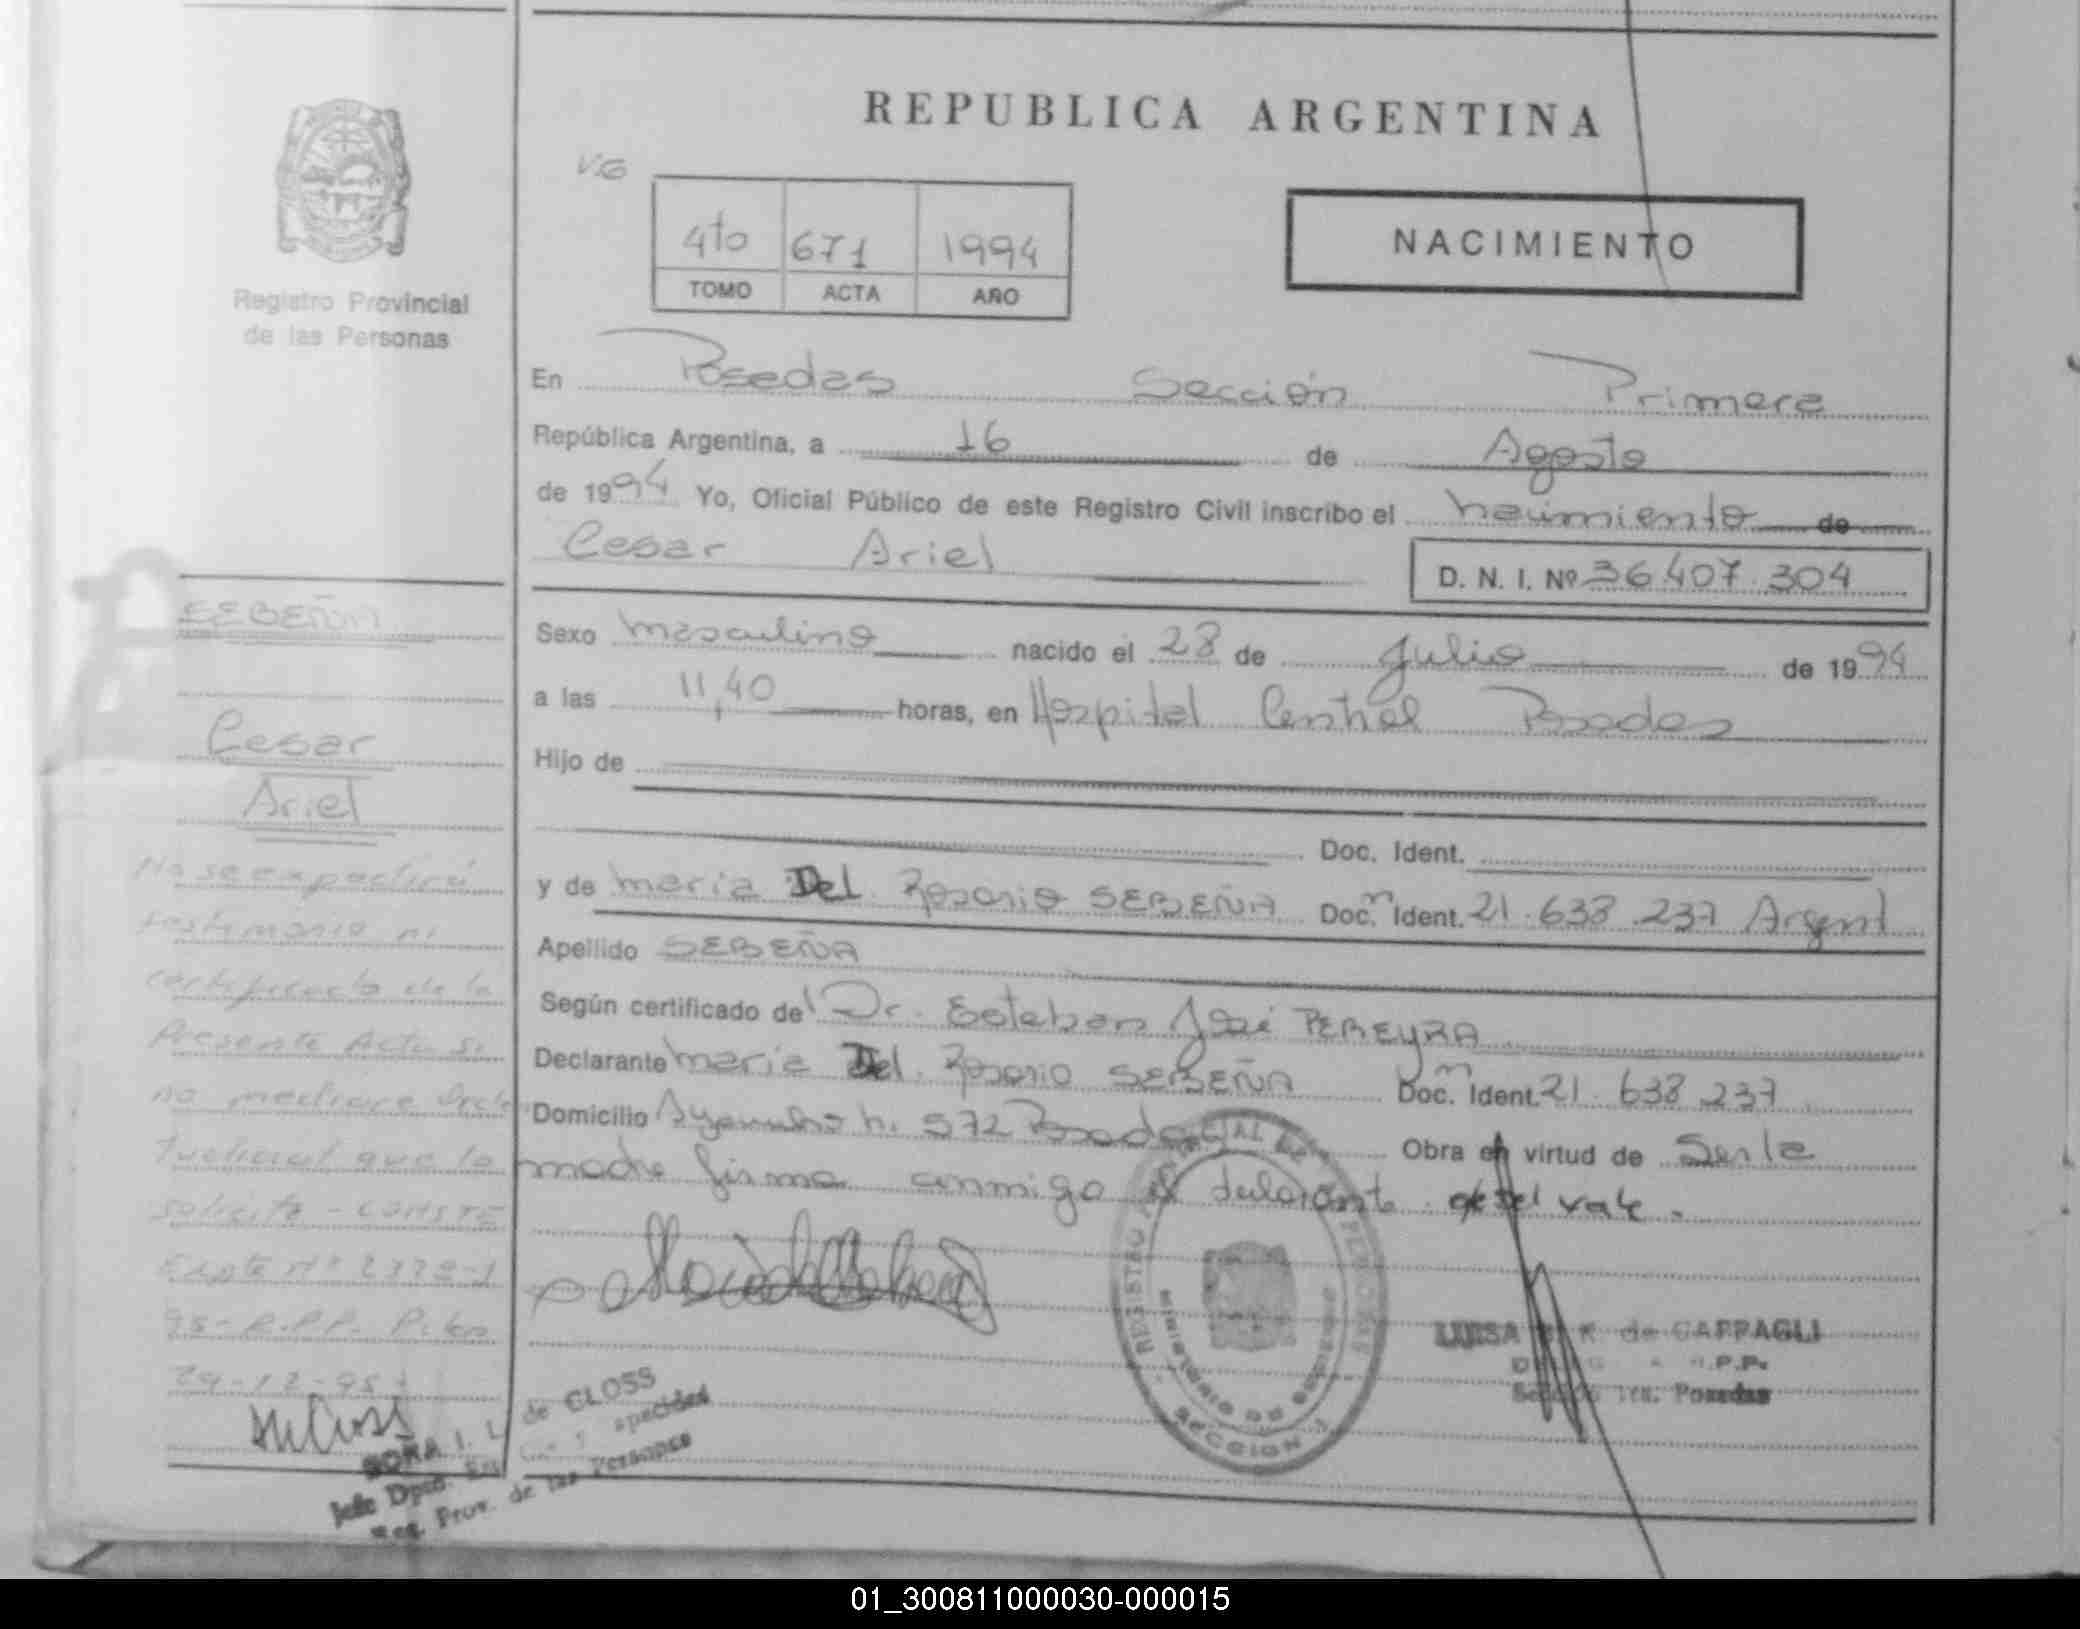 REPUBLICA ARGENTINA
4to 671 1994
TOMO ACTA AÑO
NACIMIENTO
Registro Provincial
de las Personas
En Posadas Sección Primera
República Argentina, a 16 de Agosto
de 1994 Yo, Oficial Público de este Registro Civil inscribo el nacimiento de
Cesar Ariel
D. N. I. Nº 36.407.304
Sexo masculino nacido el 28 de Julio de 1994
a las 11,40 horas, en Hospital Central Posadas
Hijo de
Doc. Ident.
y de maria Del Rosario SEBEÑA Doc. Ident. 21.638.237 Argent
Apellido SEBEÑA
Según certificado del Dr. Esteban José PEREYRA
Declarante maria Del Rosario SEBEÑA Doc. Ident. 21.638.237
Domicilio n. 572 Posadas Obra en virtud de Ser la
madre firma conmigo declarante vale.
SEBEÑA
Cesar
Ariel
No se expedirá
testimonio ni
certificado de la
Presente Acta si
no mediare Orden
Judicial que lo
solicite - CONSTE
Expte Nº
95-R.P.P.
29-12-95
REGISTRO PROVINCIAL DE LAS PERSONAS
MINISTERIO DE GOBIERNO
SECCION 1
LUISA K. de CAFFAGLI
R.P.P.
Sección 1ra. Posadas
de GLOSS
Jefe Dpto.
Reg. Prov. de las Personas
01_300811000030-000015